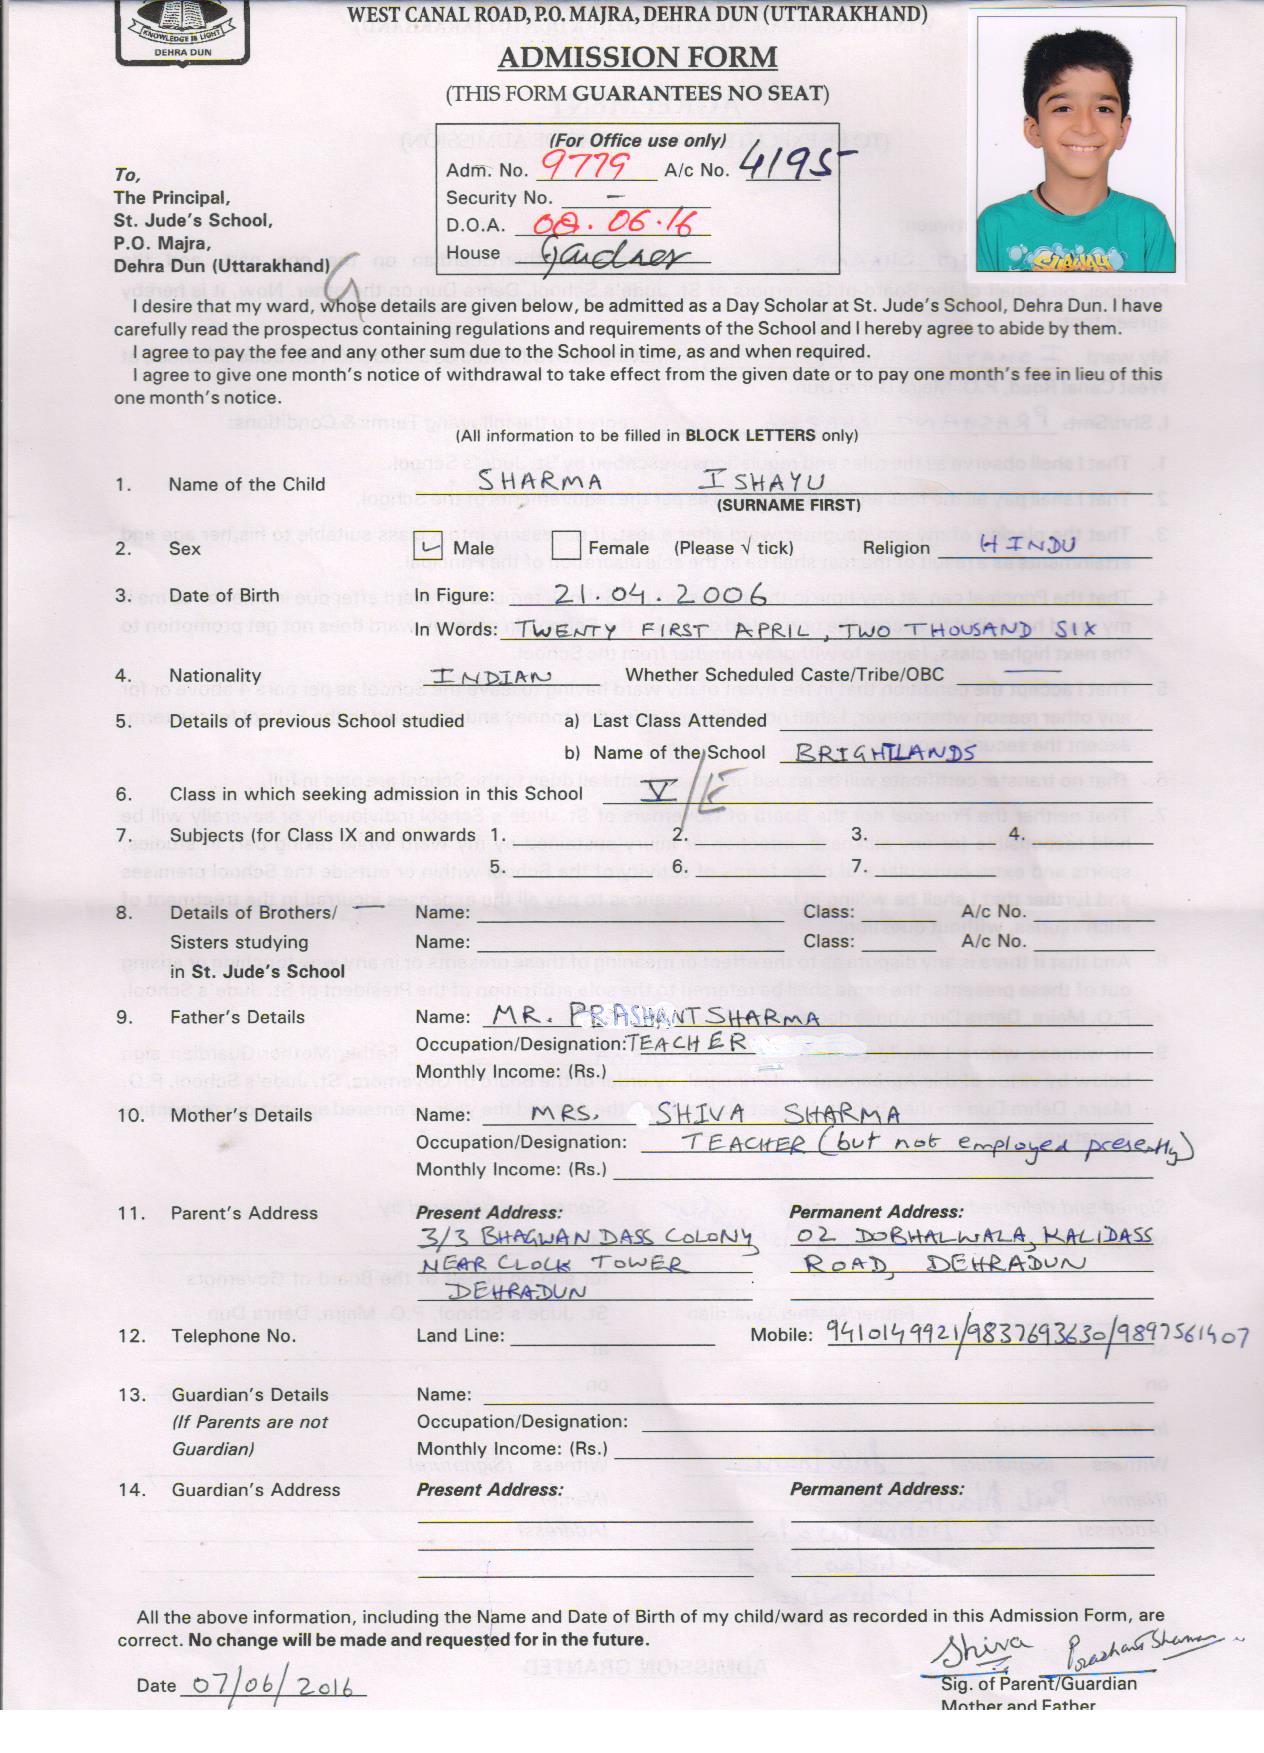 KNOWLEDGE IS LIGHT
DEHRA DUN
WEST CANAL ROAD, P.O. MAJRA, DEHRA DUN (UTTARAKHAND)
ADMISSION FORM
(THIS FORM GUARANTEES NO SEAT)
(For Office use only)
Adm. No. 9779 A/c No. 4195
Security No. –
D.O.A. 08.06.16
House Gardner
To,
The Principal,
St. Jude's School,
P.O. Majra,
Dehra Dun (Uttarakhand)
I desire that my ward, whose details are given below, be admitted as a Day Scholar at St. Jude's School, Dehra Dun. I have
carefully read the prospectus containing regulations and requirements of the School and I hereby agree to abide by them.
I agree to pay the fee and any other sum due to the School in time, as and when required.
I agree to give one month's notice of withdrawal to take effect from the given date or to pay one month's fee in lieu of this
one month's notice.
(All information to be filled in BLOCK LETTERS only)
1. Name of the Child SHARMA ISHAYU
(SURNAME FIRST)
2. Sex Male Female (Please √ tick) Religion HINDU
3. Date of Birth In Figure: 21.04.2006
In Words: TWENTY FIRST APRIL, TWO THOUSAND SIX
4. Nationality INDIAN Whether Scheduled Caste/Tribe/OBC
5. Details of previous School studied a) Last Class Attended
b) Name of the School BRIGHTLANDS
6. Class in which seeking admission in this School V/E
7. Subjects (for Class IX and onwards 1. 2. 3. 4.
5. 6. 7.
8. Details of Brothers/ Name: Class: A/c No.
Sisters studying Name: Class: A/c No.
in St. Jude's School
9. Father's Details Name: MR. PRASHANT SHARMA
Occupation/Designation: TEACHER
Monthly Income: (Rs.)
10. Mother's Details Name: MRS. SHIVA SHARMA
Occupation/Designation: TEACHER (but not employed presently)
Monthly Income: (Rs.)
11. Parent's Address Present Address: Permanent Address:
3/3 BHAGWAN DASS COLONY 02 DOBHALWALA, KALIDASS
NEAR CLOCK TOWER ROAD, DEHRADUN
DEHRADUN
12. Telephone No. Land Line: Mobile: 9410149921/9837693630/9897561407
13. Guardian's Details Name:
(If Parents are not Occupation/Designation:
Guardian) Monthly Income: (Rs.)
14. Guardian's Address Present Address: Permanent Address:
All the above information, including the Name and Date of Birth of my child/ward as recorded in this Admission Form, are
correct. No change will be made and requested for in the future.
Shiva Prashant Sharma
Date 07/06/2016
Sig. of Parent/Guardian
Mother and Father